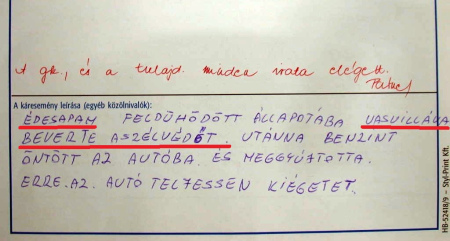 A gk., és a tulajd. minden irata elégett.
A káresemény leírása (egyéb közölnivalók):
ÉDESAPAM FELDÜHÖDÖTT ÁLLAPOTÁBA VASVILLÁVA
BEVERTE ASZÉLVÉDŐT. UTÁNNA BENZINT
ÖNTÖTT AZ AUTÓBA. ÉS MEGGYÚJTOTTA.
ERRE.AZ. AUTÓ TELJESSEN KIÉGETET.
HB-52418/9 – Styl-Print Kft.